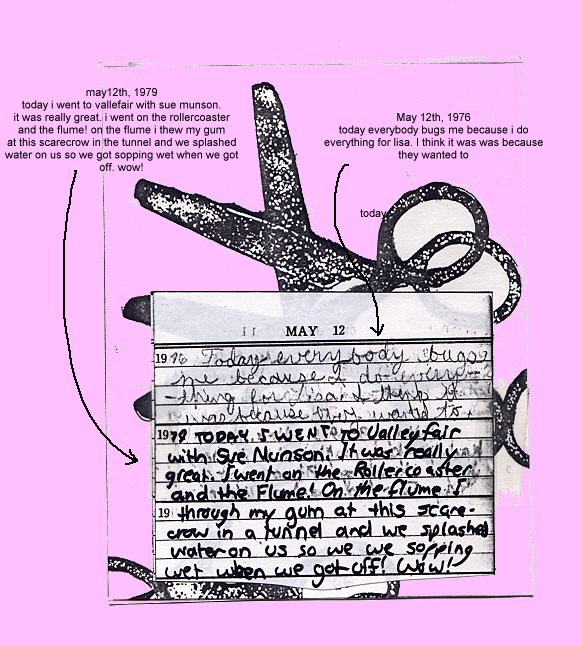 may12th, 1979
today i went to vallefair with sue munson.
it was really great. i went on the rollercoaster
and the flume! on the flume i thew my gum
at this scarecrow in the tunnel and we splashed
water on us so we got sopping wet when we got
off. wow!
May 12th, 1976
today everybody bugs me because i do
everything for lisa. I think it was was because
they wanted to
today
MAY 12
1976 Today everybody bugs
me because I do every-
thing for lisa I think it
was because they wanted to.
1979 TODAY I WENT TO Valleyfair
with Sue Munson. It was really
great. I went on the Rollercoaster
and the Flume! On the flume I
19 through my gum at this scare-
crow in a tunnel and we splashed
water on us so we we sopping
wet when we got off! Wow!